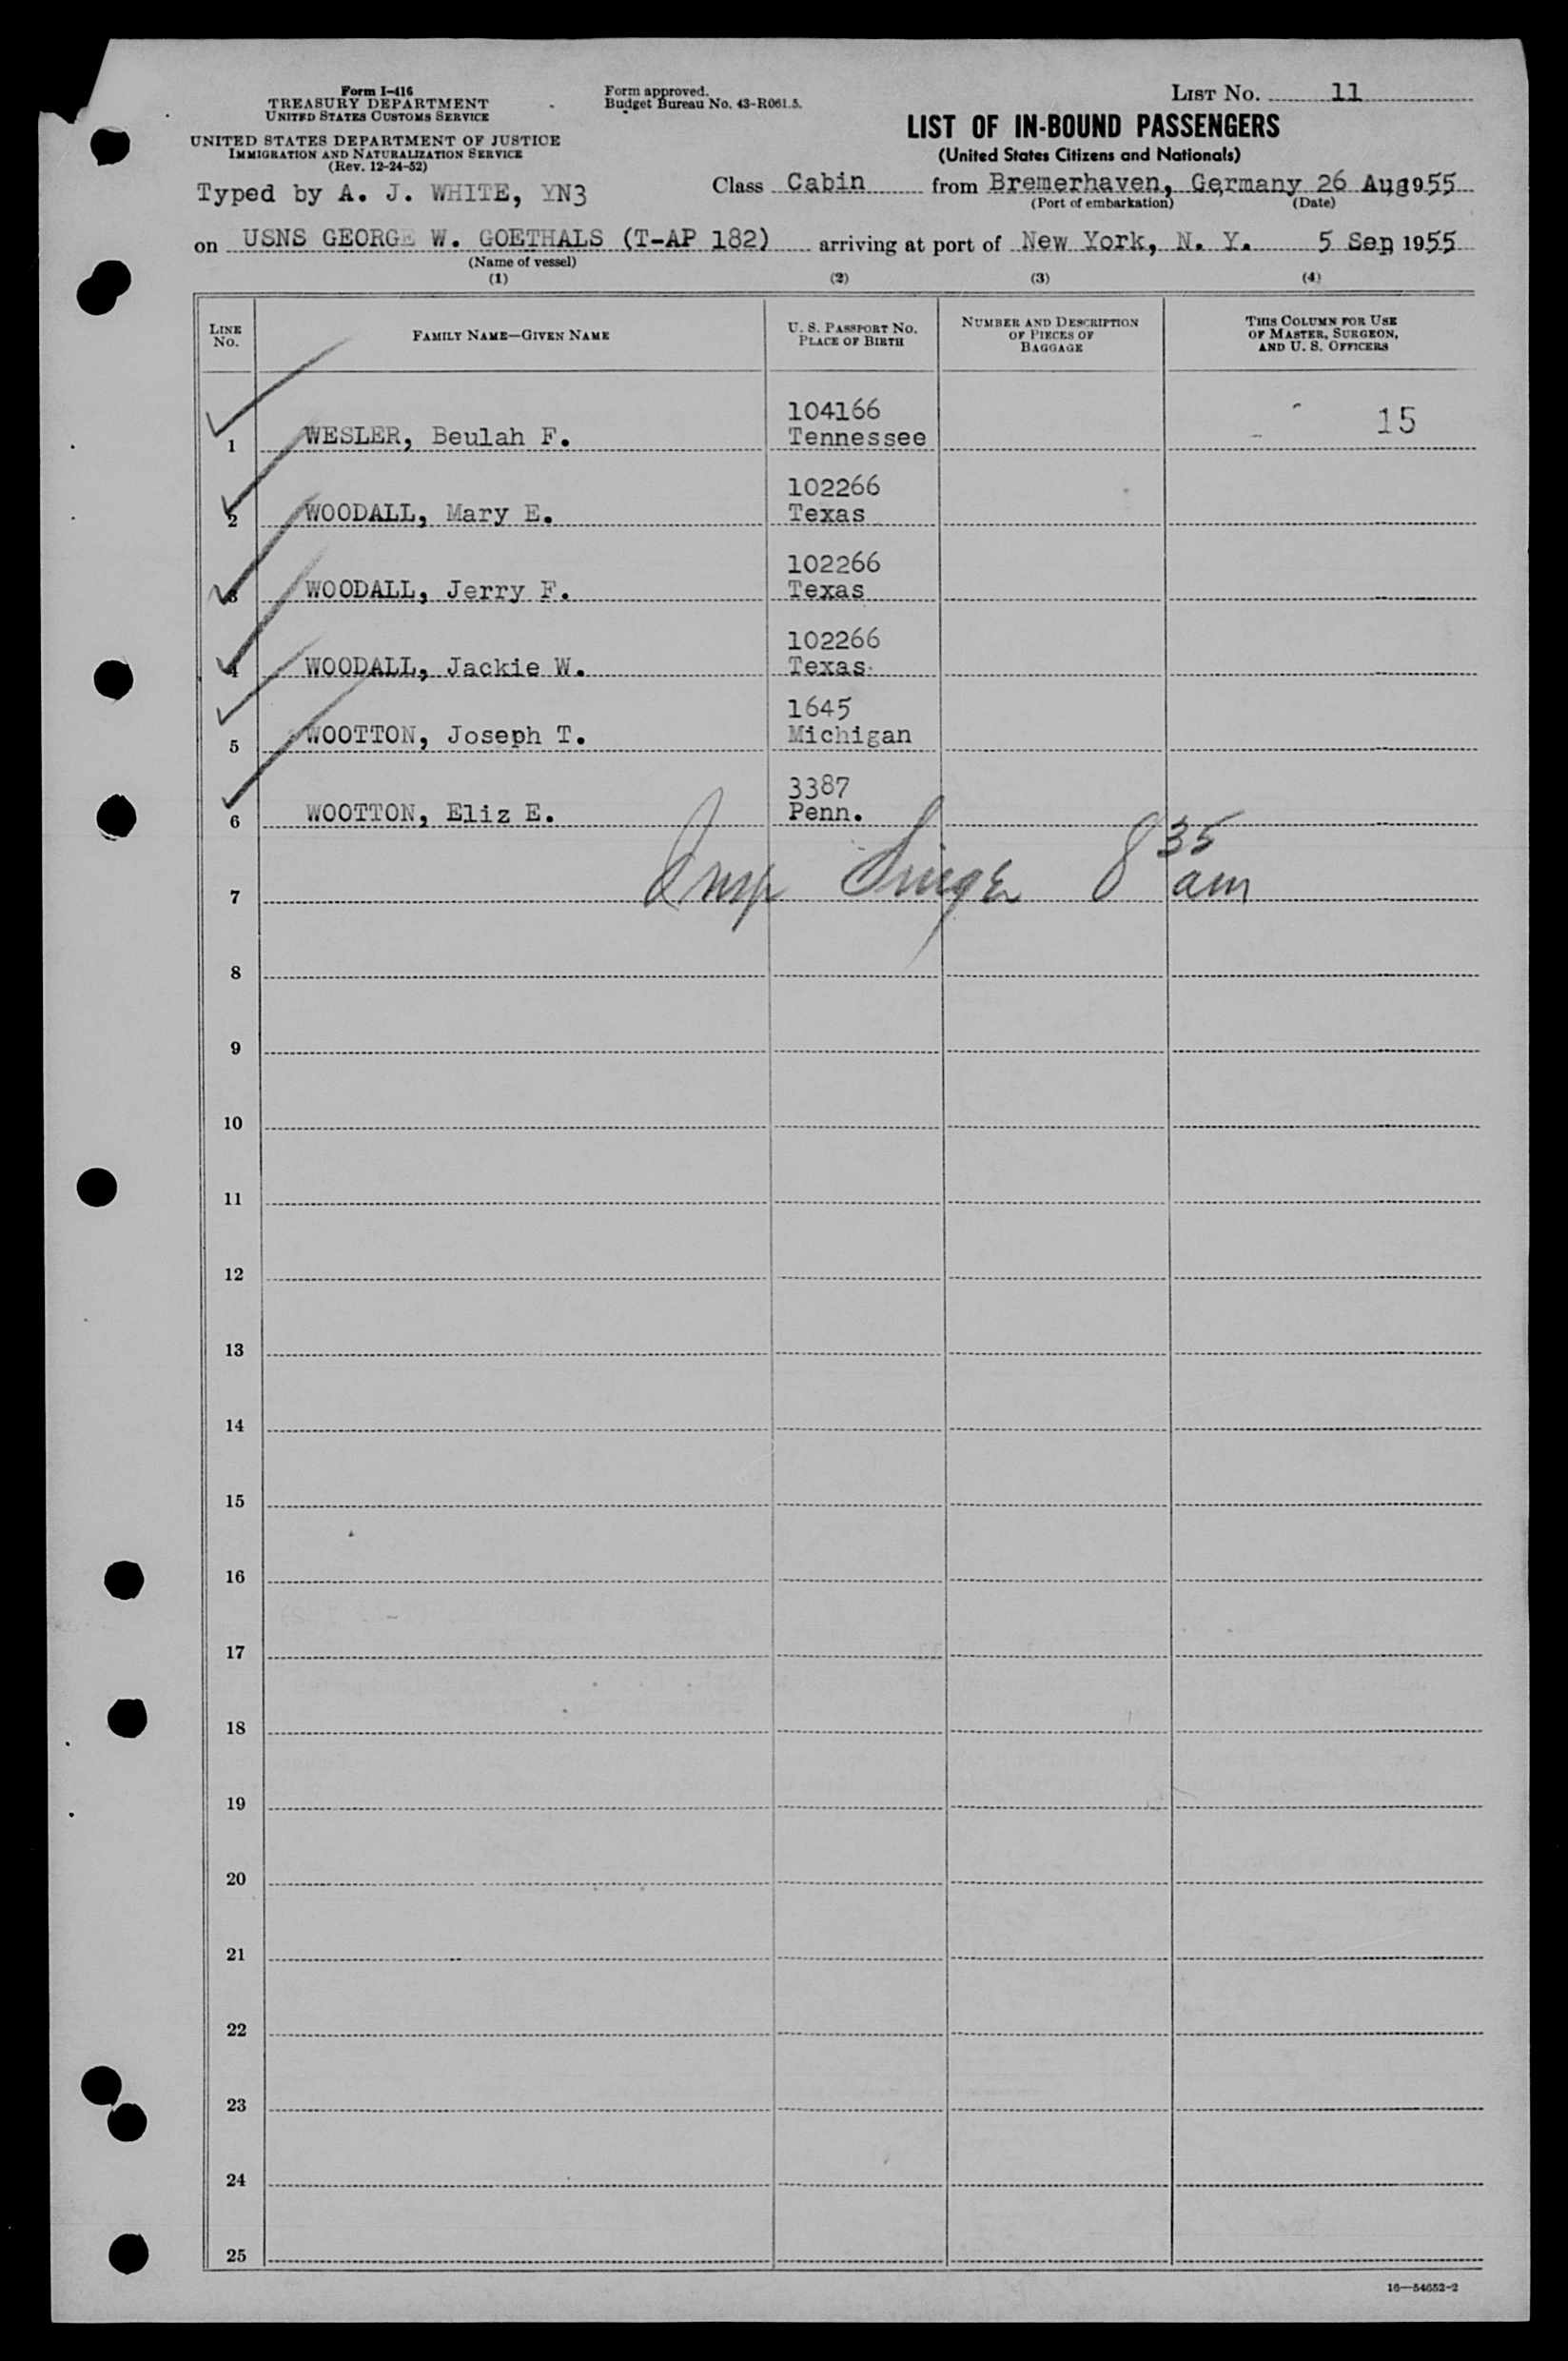 Form I-416
TREASURY DEPARTMENT
UNITED STATES CUSTOMS SERVICE
UNITED STATES DEPARTMENT OF JUSTICE
IMMIGRATION AND NATURALIZATION SERVICE
(Rev. 12-24-52)
Form approved.
Budget Bureau No. 43-R061.5.
LIST NO. 11
LIST OF IN-BOUND PASSENGERS
(United States Citizens and Nationals)
Typed by A. J. WHITE, YN3
Class Cabin from Bremerhaven, Germany 26 Aug 1955
(Port of embarkation) (Date)
on USNS GEORGE W. GOETHALS (T-AP 182) arriving at port of New York, N. Y. 5 Sep 1955
(Name of vessel)
(1) (2) (3) (4)
LINE NO.
FAMILY NAME—GIVEN NAME
U. S. PASSPORT NO.
PLACE OF BIRTH
NUMBER AND DESCRIPTION
OF PIECES OF
BAGGAGE
THIS COLUMN FOR USE
OF MASTER, SURGEON,
AND U. S. OFFICERS
104166 15
1 WESLER, Beulah F. Tennessee
102266
2 WOODALL, Mary E. Texas
102266
3 WOODALL, Jerry F. Texas
102266
4 WOODALL, Jackie W. Texas
1645
5 WOOTTON, Joseph T. Michigan
3387
6 WOOTTON, Eliz E. Penn.
Insp Singer 8 35 am
7
8
9
10
11
12
13
14
15
16
17
18
19
20
21
22
23
24
25
16—54652-2